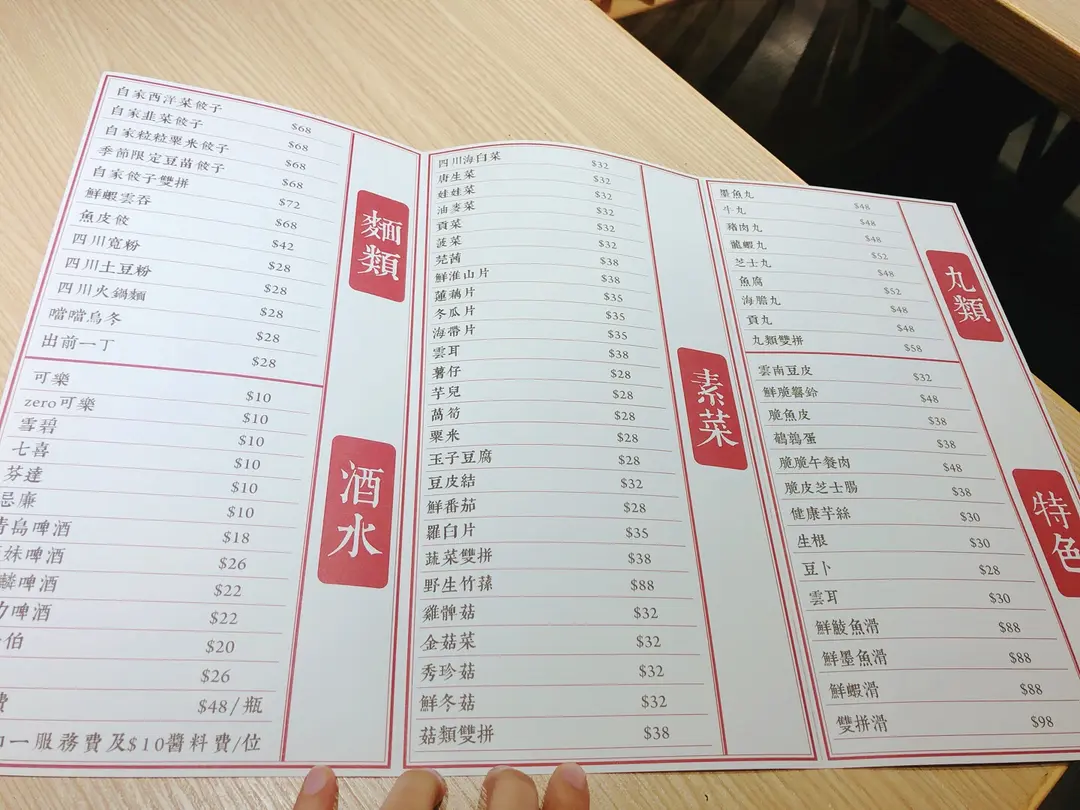 麵類
自家西洋菜餃子 $68
自家韭菜餃子 $68
自家粒粒粟米餃子 $68
季節限定豆苗餃子 $68
自家餃子雙拼 $72
鮮蝦雲吞 $68
魚皮餃 $42
四川寬粉 $28
四川土豆粉 $28
四川火鍋麵 $28
噹噹烏冬 $28
出前一丁 $28
酒水
可樂 $10
zero可樂 $10
雪碧 $10
七喜 $10
芬達 $10
忌廉 $10
青島啤酒 $18
妹啤酒 $26
麟啤酒 $22
力啤酒 $22
伯 $20
$26
費 $48/瓶
加一服務費及$10醬料費/位
素菜
四川海白菜 $32
唐生菜 $32
娃娃菜 $32
油麥菜 $32
貢菜 $32
菠菜 $32
芫茜 $38
鮮淮山片 $38
蓮藕片 $35
冬瓜片 $35
海帶片 $35
雲耳 $38
薯仔 $28
芋兒 $28
萵筍 $28
粟米 $28
玉子豆腐 $28
豆皮結 $32
鮮番茄 $28
羅白片 $35
蔬菜雙拼 $38
野生竹蓀 $88
雞髀菇 $32
金菇菜 $32
秀珍菇 $32
鮮冬菇 $32
菇類雙拼 $38
丸類
墨魚丸 $48
牛丸 $48
豬肉丸 $48
龍蝦丸 $52
芝士丸 $48
魚腐 $52
海膽丸 $48
貢丸 $48
丸類雙拼 $58
特色
雲南豆皮 $32
鮮脆響鈴 $48
脆魚皮 $38
鵪鶉蛋 $38
脆脆午餐肉 $48
脆皮芝士腸 $38
健康芋絲 $30
生根 $30
豆卜 $28
雲耳 $30
鮮鯪魚滑 $88
鮮墨魚滑 $88
鮮蝦滑 $88
雙拼滑 $98